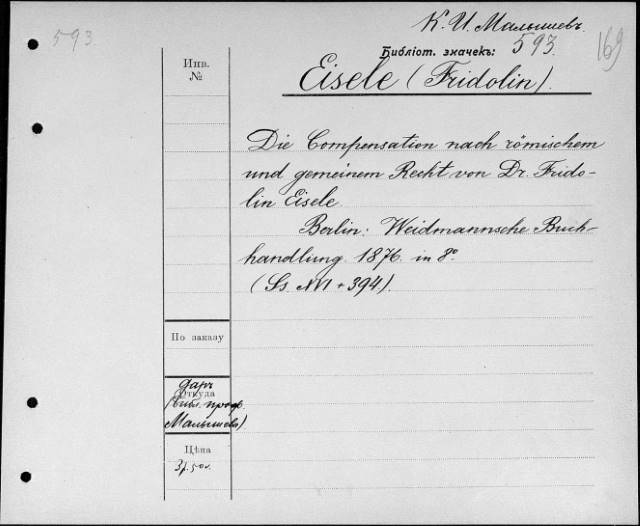 593
К. И. Малышевъ
169
Библіот. значекъ: 593
Инв.
№
Eisele (Fridolin).
Die Compensation nach römischem
und gemeinem Recht von Dr. Frido-
lin Eisele
Berlin: Weidmannsche Buch-
handlung 1876 in 8°
(Ss. XVI + 394).
По заказу
Откуда
даръ
(библ. проф.
Малышева)
Цѣна
3р. 50к.